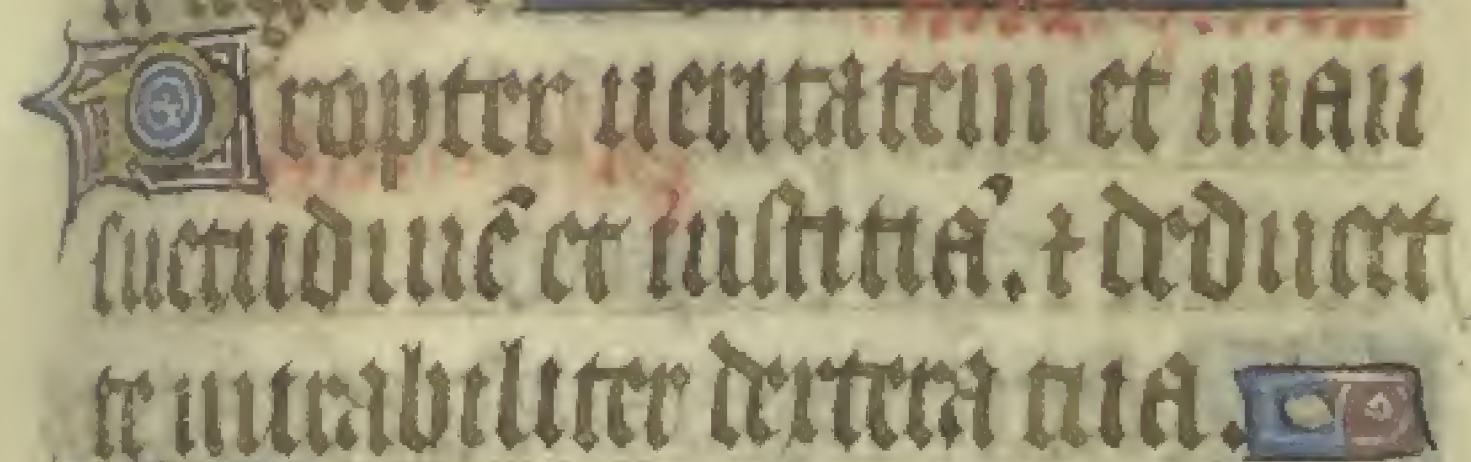 Propter ueritatem et man
suetudinē et iusticiā. ⁊ deducet
te mirabiliter dextera tua.